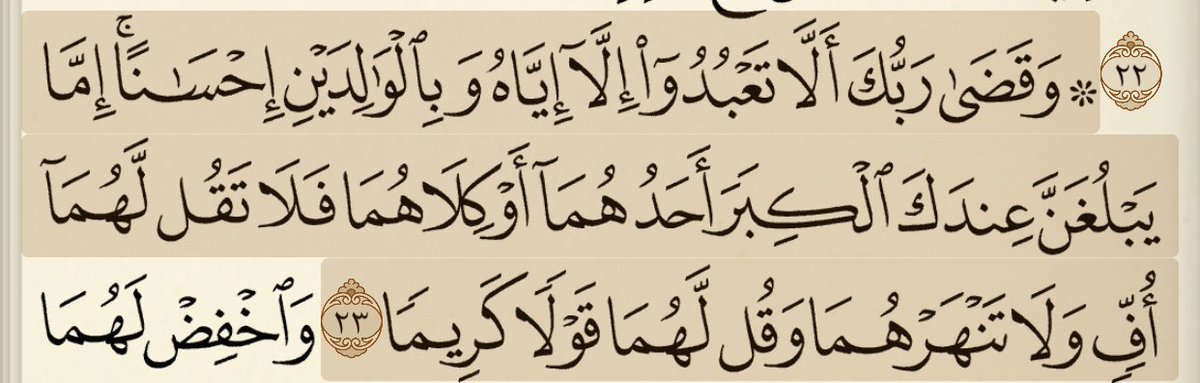 ٢٢ ۞ وَقَضَىٰ رَبُّكَ أَلَّا تَعْبُدُوٓا۟ إِلَّآ إِيَّاهُ وَبِٱلْوَٰلِدَيْنِ إِحْسَـٰنًا ۚ إِمَّا
يَبْلُغَنَّ عِندَكَ ٱلْكِبَرَ أَحَدُهُمَآ أَوْ كِلَاهُمَا فَلَا تَقُل لَّهُمَآ
أُفٍّ وَلَا تَنْهَرْهُمَا وَقُل لَّهُمَا قَوْلًا كَرِيمًا ٢٣ وَٱخْفِضْ لَهُمَا